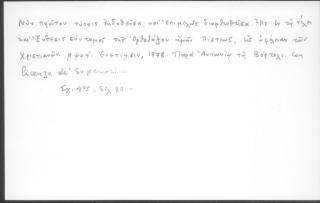 Νῦν πρῶτον τύποις ἐκδοθεῖσα, καὶ ἐπιμελῶς διορθωθεῖσα. Ἧς ἐν τῷ τέλει
καὶ Ἔκθεσις σύντομος τῆς Ὀρθοδόξου ἡμῶν Πίστεως, εἰς ὠφέλειαν τῶν
Χριστιανῶν Ἐνετίησιν, Παρὰ Ἀντωνίῳ τῷ Βόρτολι. Con
licenza de' Superiori.
Σχ. 4ον, Σελ. 80.-